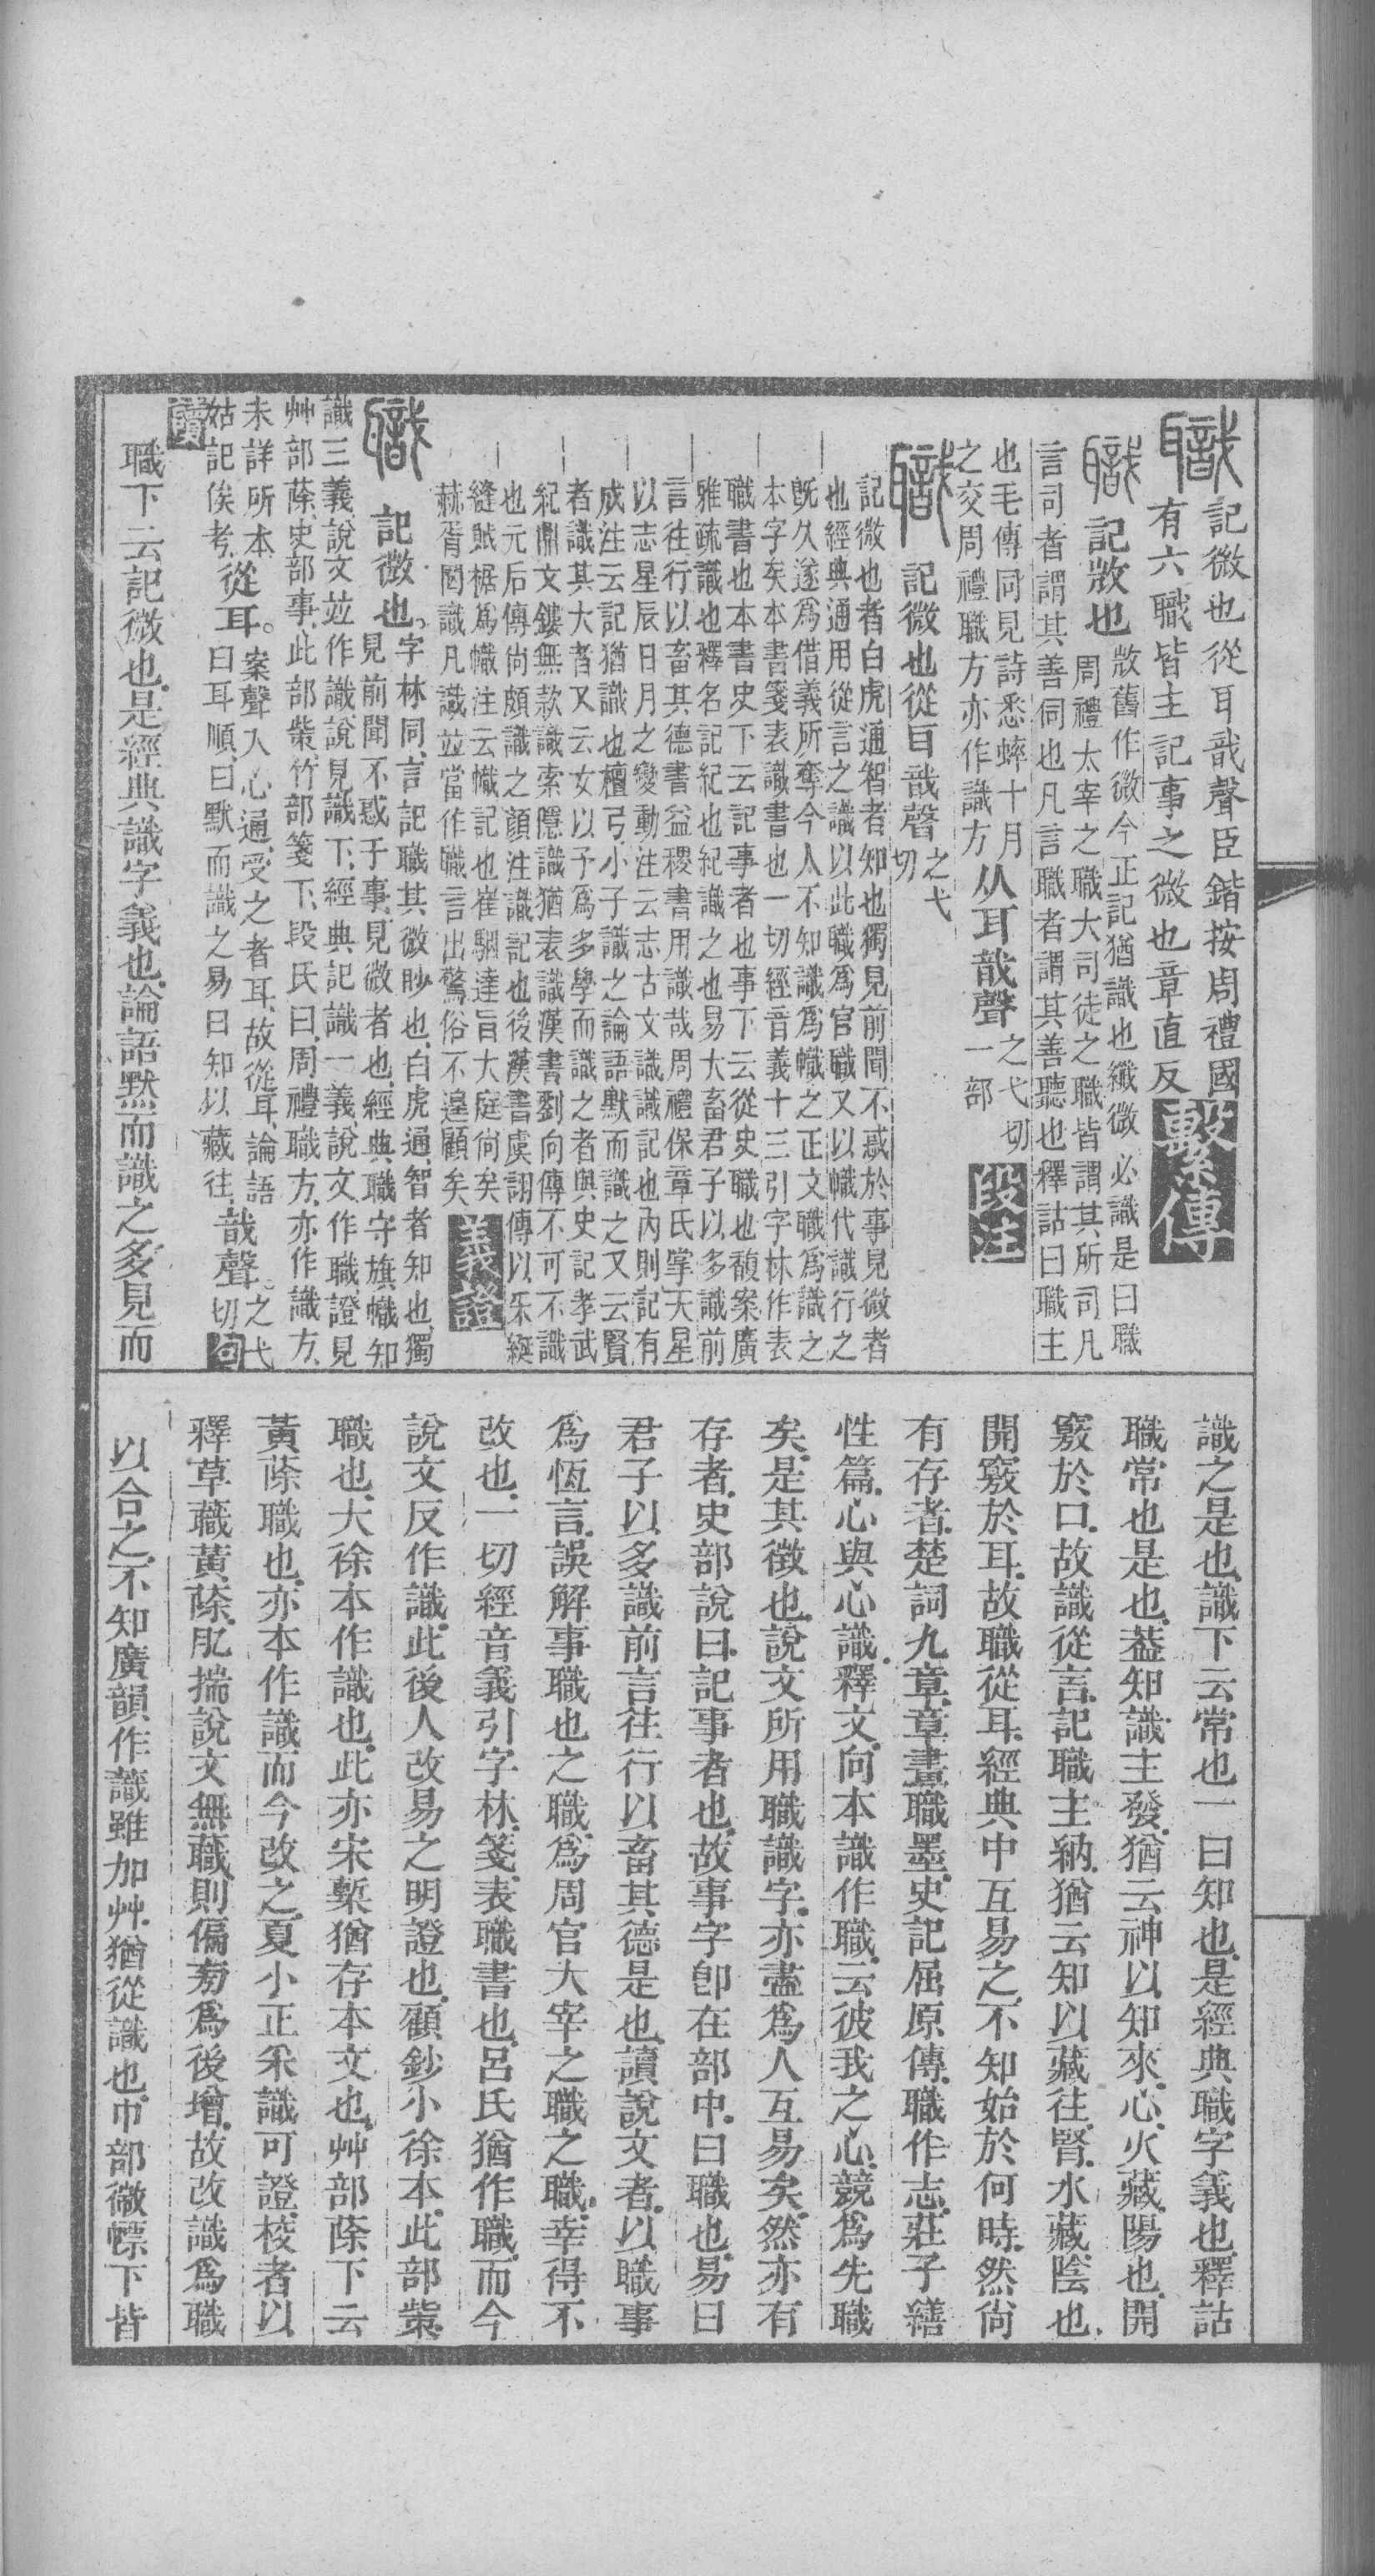 職 記微也從耳戠聲臣鍇按周禮國
有六職皆主記事之微也章直反 繫傳
職 記㪫也 㪫舊作微今正記猶識也纖微必識是曰職
周禮太宰之職大司徒之職皆謂其所司凡
言司者謂其善伺也凡言職者謂其善聽也釋詁曰職主
也毛傳同見詩悉蟀十月
之交周禮職方亦作識方 从耳戠聲 之弋切
一部 段注
職 記微也從耳戠聲 之弋
切
記微也者白虎通智者知也獨見前聞不惑於事見微者
也經典通用從言之識以此職爲官職又以幟代識行之
旣久遂爲借義所奪今人不知識爲幟之正文職爲識之
本字矣本書箋表識書也一切經音義十三引字林作表
職書也本書史下云記事者也事下云從史職也馥案廣
雅疏識也釋名記紀也紀識之也易大畜君子以多識前
言往行以畜其德書益稷書用識哉周禮保章氏掌天星
以志星辰日月之變動注云志古文識識記也內則記有
成注云記猶識也檀弓小子識之論語默而識之又云賢
者識其大者又云女以予爲多學而識之者與史記孝武
紀鼎文鏤無款識索隱識猶表識漢書劉向傳不可不識
也元后傳尙頗識之顏注識記也後漢書虞詡傳以釆綖
縫賊裾爲幟注云幟記也崔駰達旨大庭尙矣
赫胥罔識凡識竝當作職言出驚俗不遑顧矣 義證
職 記微也 字林同言記職其微眇也白虎通智者知也獨
見前聞不惑于事見微者也經典職守旗幟知
識三義說文竝作識說見識下經典記識一義說文作職證見
艸部蒢史部事此部㧘竹部箋下段氏曰周禮職方亦作識方
未詳所本 從耳 案聲入心通受之者耳故從耳論語
姑記俟考 曰耳順曰默而識之易曰知以藏往 戠聲 之弋
切 句
讀
職下云記微也是經典識字義也論語默而識之多見而
識之是也識下云常也一曰知也是經典職字義也釋詁
職常也是也葢知識主發猶云神以知來心火藏陽也開
竅於口故識從言記職主納猶云知以藏往腎水藏陰也
開竅於耳故職從耳經典中互易之不知始於何時然尙
有存者楚詞九章章畫職墨史記屈原傳職作志莊子繕
性篇心與心識釋文向本識作職云彼我之心競爲先職
矣是其徵也說文所用職識字亦盡爲人互易矣然亦有
存者史部說曰記事者也故事字卽在部中曰職也易曰
君子以多識前言往行以畜其德是也讀說文者以職事
爲恆言誤解事職也之職爲周官大宰之職之職幸得不
改也一切經音義引字林箋表職書也呂氏猶作職而今
說文反作識此後人改易之明證也顧鈔小徐本此部㧘
職也大徐本作識也此亦宋槧猶存本文也艸部蒢下云
黃蒢職也亦本作識而今改之夏小正采識可證校者以
釋草蘵黃蒢肊揣說文無蘵則偏㫄爲後增故改識爲職
以合之不知廣韻作蘵雖加艸猶從識也巾部微幖下皆